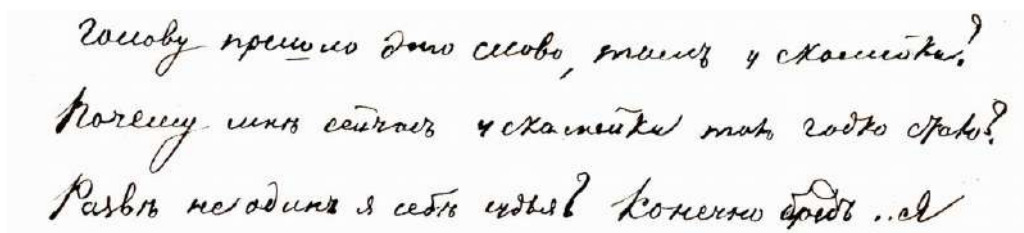 голову пришло это слово, тамъ у скамейки?
Почему мнѣ сейчасъ у скамейки такъ гадко стало?
Развѣ не одинъ я себѣ судья? Конечно бредъ.. Я